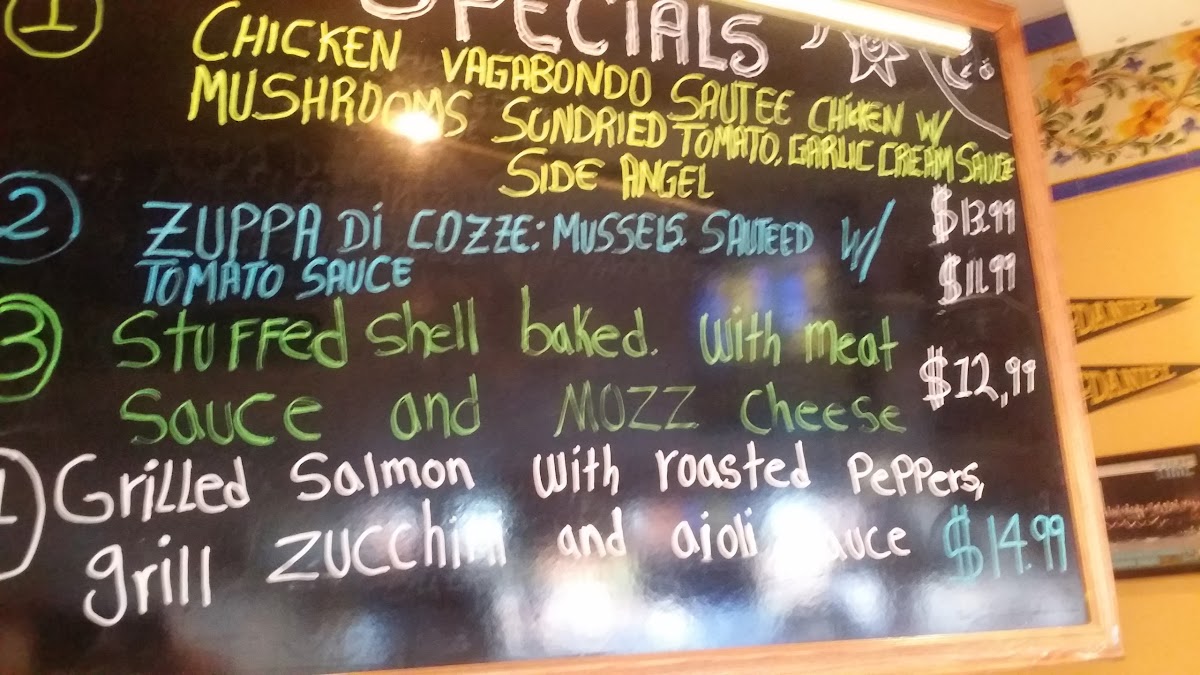 SPECIALS
1
CHICKEN VAGABONDO SAUTEE CHICKEN W/
MUSHROOMS SUNDRIED TOMATO, GARLIC CREAM SAUCE
SIDE ANGEL
$13.99
2
ZUPPA Di COZZE: MUSSELS. SAUTEED W/
TOMATO SAUCE
$11.99
3
Stuffed Shell baked. With meat
Sauce and MOZZ Cheese
$12,99
Grilled Salmon With roasted Peppers,
grill zucchini and aioli sauce
$14.99
DANIEL
DANIEL